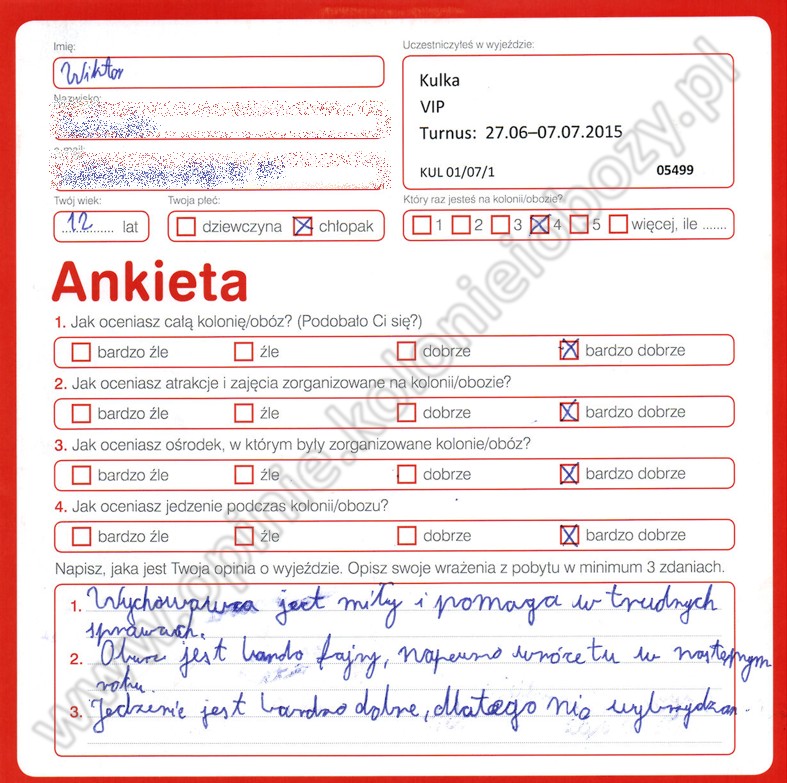 Imię:
Wiktor
Uczestniczyłeś w wyjeździe:
Kulka
VIP
Turnus: 27.06–07.07.2015
KUL 01/07/1 05499
Nazwisko:
e-mail:
Twój wiek:
12 lat
Twoja płeć:
dziewczyna chłopak
Który raz jesteś na kolonii/obozie?
1 2 3 4 5 więcej, ile .......
Ankieta
1. Jak oceniasz całą kolonię/obóz? (Podobało Ci się?)
bardzo źle źle dobrze bardzo dobrze
2. Jak oceniasz atrakcje i zajęcia zorganizowane na kolonii/obozie?
bardzo źle źle dobrze bardzo dobrze
3. Jak oceniasz ośrodek, w którym były zorganizowane kolonie/obóz?
bardzo źle źle dobrze bardzo dobrze
4. Jak oceniasz jedzenie podczas kolonii/obozu?
bardzo źle źle dobrze bardzo dobrze
Napisz, jaka jest Twoja opinia o wyjeździe. Opisz swoje wrażenia z pobytu w minimum 3 zdaniach.
1. Wychowawca jest miły i pomaga w trudnych
sprawach.
2. jest bardo fajny, napewno wrócę tu w następnym
roku.
3. Jedzenie jest bardzo dobre, dlatego nie wybrzydzam.
www.opinie.kolonieiobozy.pl